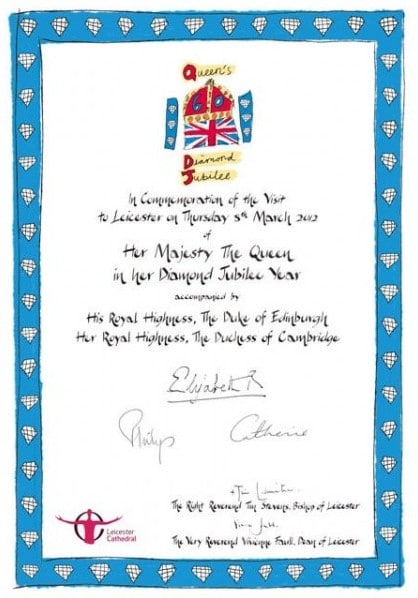 Queen's
60
Diamond
Jubilee
In Commemoration of the Visit
to Leicester on Thursday 8th March 2012
of
Her Majesty The Queen
in her Diamond Jubilee Year
accompanied by
His Royal Highness, The Duke of Edinburgh
Her Royal Highness, The Duchess of Cambridge
Elizabeth R
Philip
Catherine
+Tim Leicester
The Right Reverend Tim Stevens, Bishop of Leicester
The Very Reverend Vivienne Faull, Dean of Leicester
Leicester
Cathedral